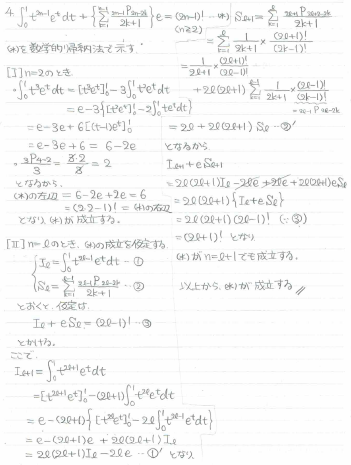 4. ∫₀¹ t²ⁿ⁻¹eᵗdt + {Σ_{k=1}^{n-1} ₂ₙ₋₁P₂ₙ₋₂ₖ/(2k+1)}e = (2n-1)! …(*)
(n≧2)
(*)を数学的帰納法で示す.
[I] n=2のとき.
∫₀¹t³eᵗdt = [t³eᵗ]₀¹ - 3∫₀¹t²eᵗdt
= e-3{[t²eᵗ]₀¹ - 2∫₀¹teᵗdt}
= e-3e+6[(t-1)eᵗ]₀¹
= e-3e+6 = 6-2e
となるから.
(*)の左辺 = 6-2e+2e = 6
= (2·2-1)! = (*)の右辺
となり(*)が成立する.
[II] n=ℓのとき. (*)の成立を仮定する.
{ Iℓ = ∫₀¹ t²ℓ⁻¹eᵗdt …①
Sℓ = Σ_{k=1}^{ℓ-1} ₂ℓ₋₁P₂ℓ₋₂ₖ/(2k+1) …②
とおくと, 仮定は.
Iℓ + eSℓ = (2ℓ-1)! …③
とかける.
ここで.
Iℓ₊₁ = ∫₀¹ t²ℓ⁺¹eᵗdt
= [t²ℓ⁺¹eᵗ]₀¹ - (2ℓ+1)∫₀¹t²ℓeᵗdt
= e-(2ℓ+1){[t²ℓeᵗ]₀¹ - 2ℓ∫₀¹t²ℓ⁻¹eᵗdt}
= e-(2ℓ+1)e + 2ℓ(2ℓ+1)Iℓ
= 2ℓ(2ℓ+1)Iℓ - 2ℓe …①′ となり
Sℓ₊₁ = Σ_{k=1}^{ℓ} ₂ℓ₊₁P₂ℓ₊₂₋₂ₖ/(2k+1)
= Σ_{k=1}^{ℓ} 1/(2k+1) × (2ℓ+1)!/(2k-1)!
= 1/(2ℓ+1) × (2ℓ+1)!/(2ℓ-1)!
+ 2ℓ(2ℓ+1) Σ_{k=1}^{ℓ-1} 1/(2k+1) × (2ℓ-1)!/(2k-1)!
= 2ℓ + 2ℓ(2ℓ+1)Sℓ …②′
となるから
Iℓ₊₁ + eSℓ₊₁
= 2ℓ(2ℓ+1)Iℓ - 2ℓe + 2ℓe + 2ℓ(2ℓ+1)eSℓ
= 2ℓ(2ℓ+1){Iℓ + eSℓ}
= 2ℓ(2ℓ+1)(2ℓ-1)! (∵③)
= (2ℓ+1)! となり
(*)がn=ℓ+1でも成立する.
以上から, (*)が成立する //